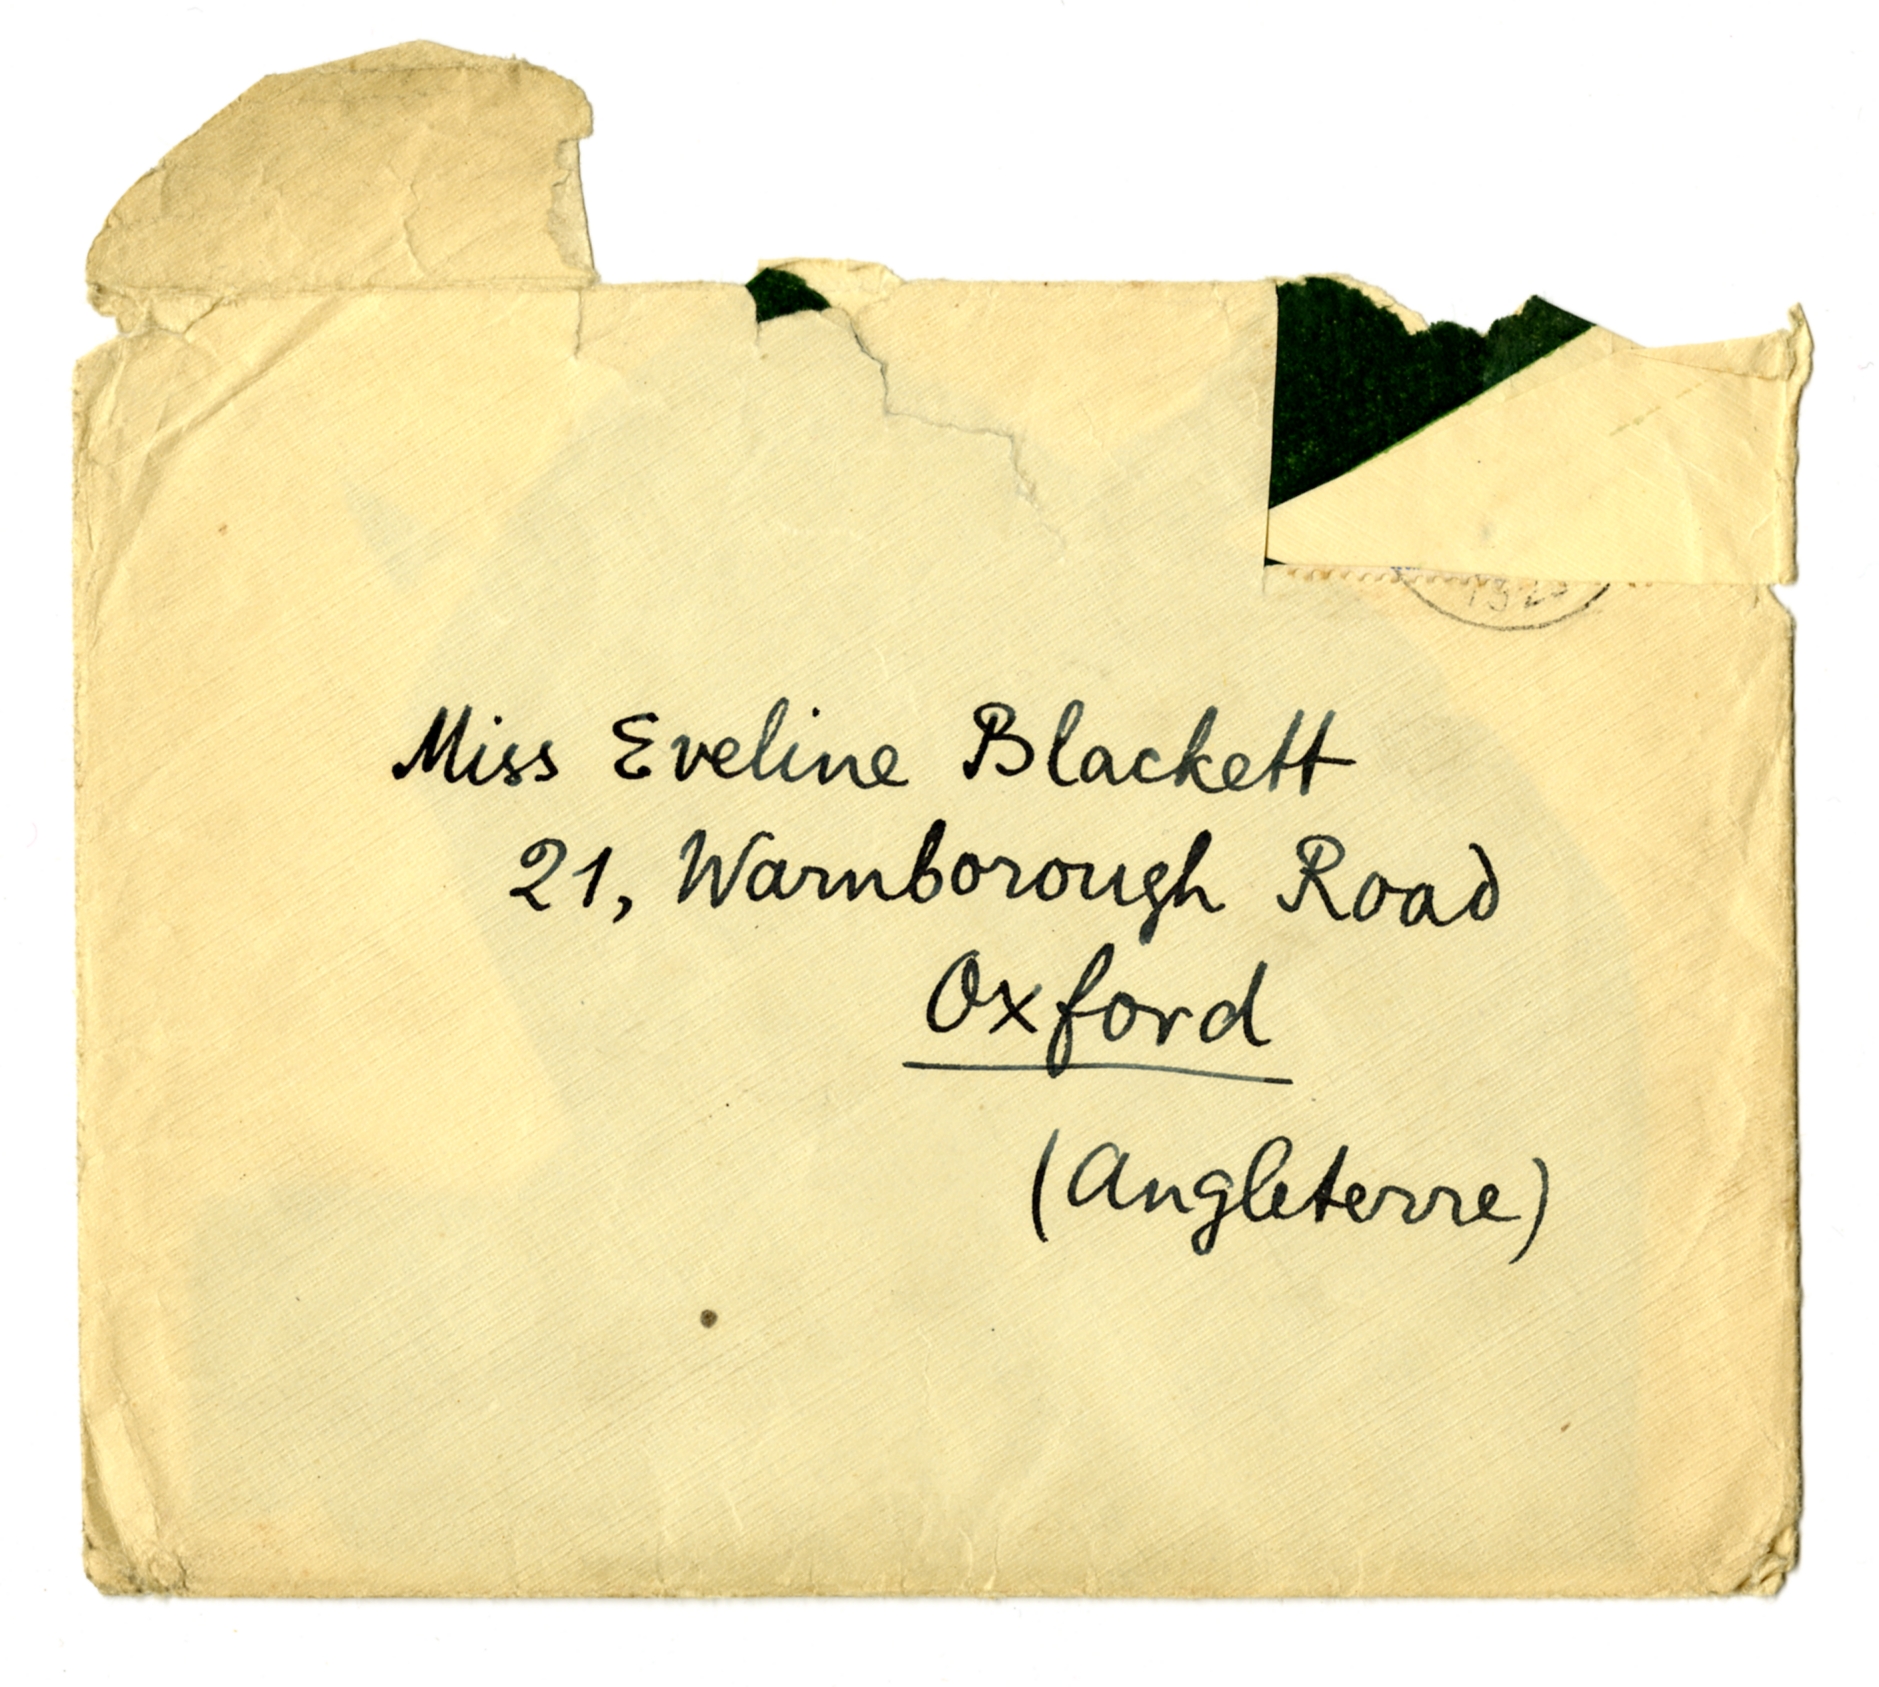 Miss Eveline Blackett
21, Warnborough Road
Oxford
(Angleterre)